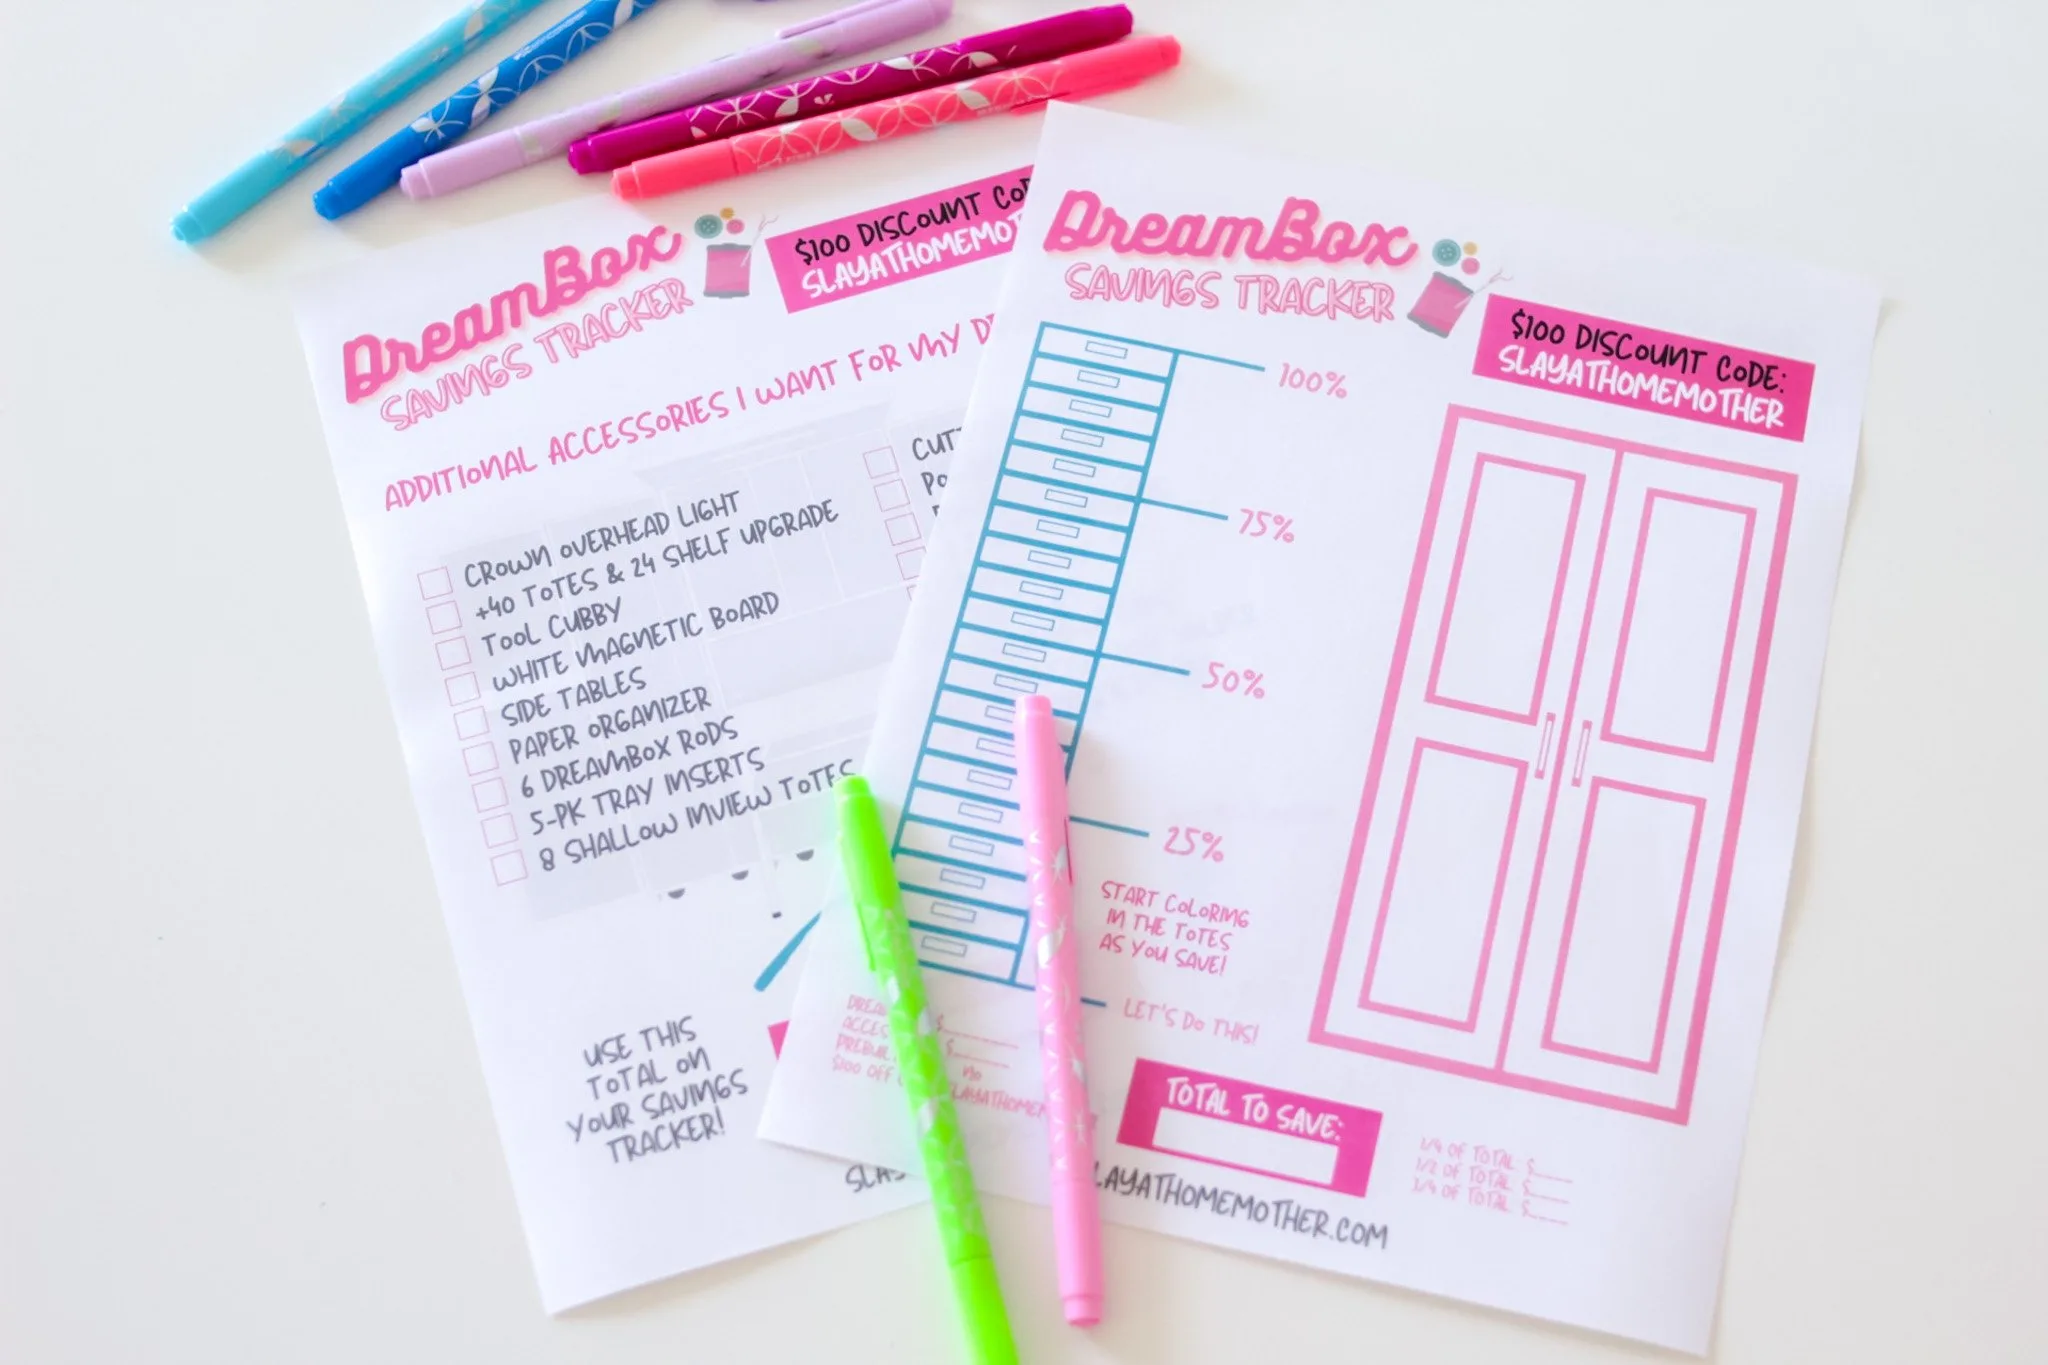 DREAMBOX
SAVINGS TRACKER
$100 DISCOUNT
SLAYATHOMEMO
ADDITIONAL ACCESSORIES I WANT FOR MY D
CROWN OVERHEAD LIGHT
+40 TOTES & 24 SHELF UPGRADE
TOOL CUBBY
WHITE MAGNETIC BOARD
SIDE TABLES
PAPER ORGANIZER
6 DREAMBOX RODS
5-PK TRAY INSERTS
8 SHALLOW INVIEW TOTES
CUT
PO
USE THIS
TOTAL ON
YOUR SAVINGS
TRACKER!
DREAMBOX
SAVINGS TRACKER
$100 DISCOUNT CODE:
SLAYATHOMEMOTHER
100%
75%
50%
25%
START COLORING
IN THE TOTES
AS YOU SAVE!
LET'S DO THIS!
$
$
NO
$100 OFF
TOTAL TO SAVE:
1/4 OF TOTAL $
1/2 OF TOTAL $
3/4 OF TOTAL $
LAYATHOMEMOTHER.COM